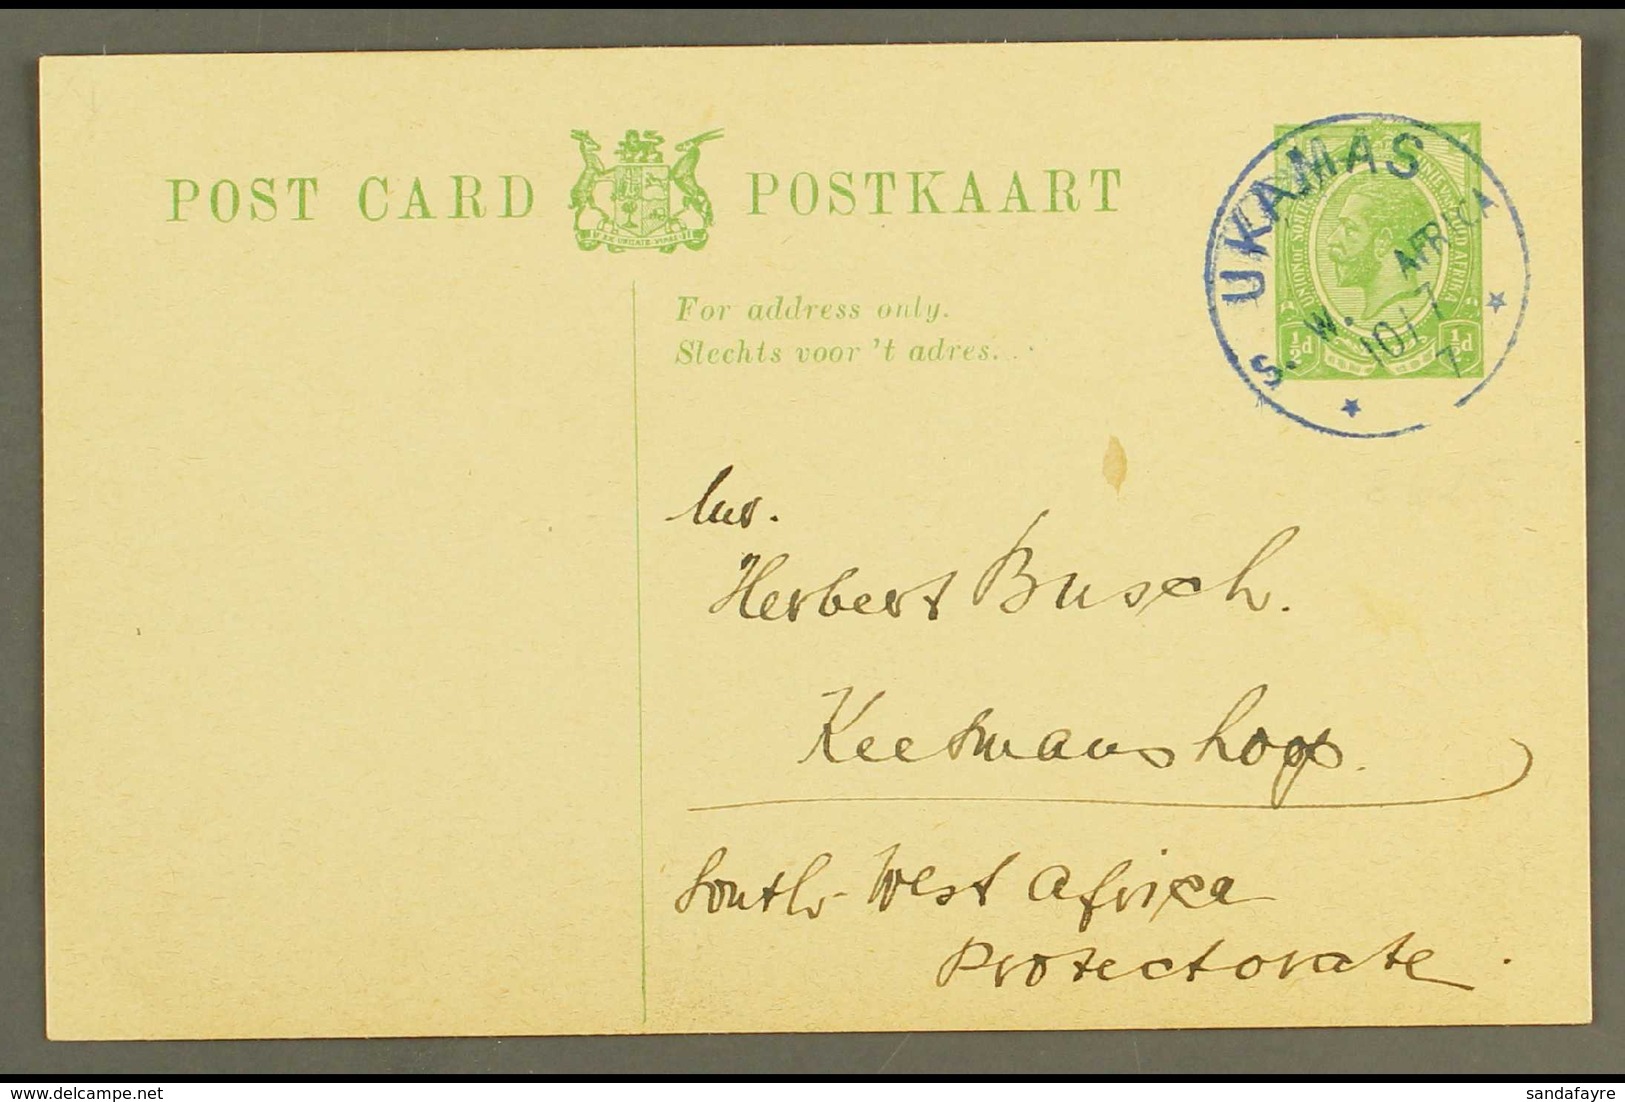 POST CARD POSTKAART
EX UNITATE VIRES
For address only.
Slechts voor 't adres.
UKAMAS
S. W. AFRICA
10/7
7
UNION OF SOUTH AFRICA
½d ½d
Herbert Busch.
Keetmanshoop.
South-West Africa
Protectorate.
sandafayre